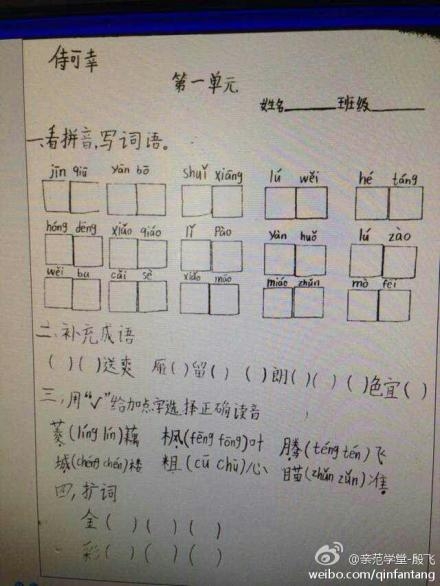 第一单元
姓名______班级______
一、看拼音,写词语。
jīn qiū yān bō shuǐ xiāng lú wěi hé táng
hóng dēng xiǎo qiáo lǐ pào yàn huǒ lú zào
wěi ba cǎi sè xiǎo māo miáo zhǔn mò fēi
二、补充成语
( )( )送爽 雁( )留( ) ( )朗( )( ) ( )色宜( )
三、用“√”给加点字选择正确读音
菱(líng lín)藕 枫(fēng fōng)叶 腾(téng tén)飞
城(chéng chén)楼 粗(cū chū)心 瞄(zhǔn zǔn)准
四、扩词
金( )( )( )
彩( )( )( )
@亲范学堂-殷飞
weibo.com/qinfantang